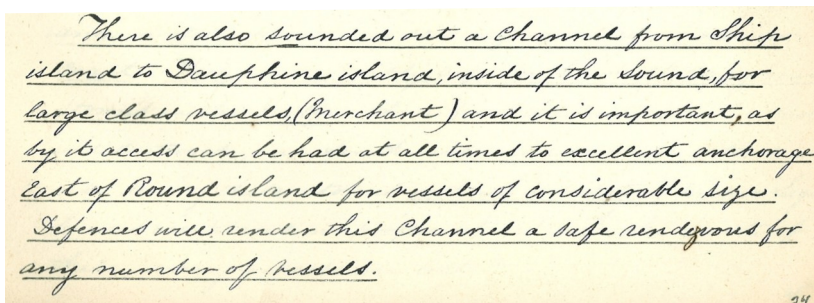 There is also sounded out a Channel from Ship
island to Dauphine island, inside of the Sound, for
large class vessels, (Merchant) and it is important, as
by it access can be had at all times to excellent anchorage
East of Round island for vessels of considerable size.
Defences will render this Channel a safe rendezvous for
any number of vessels.